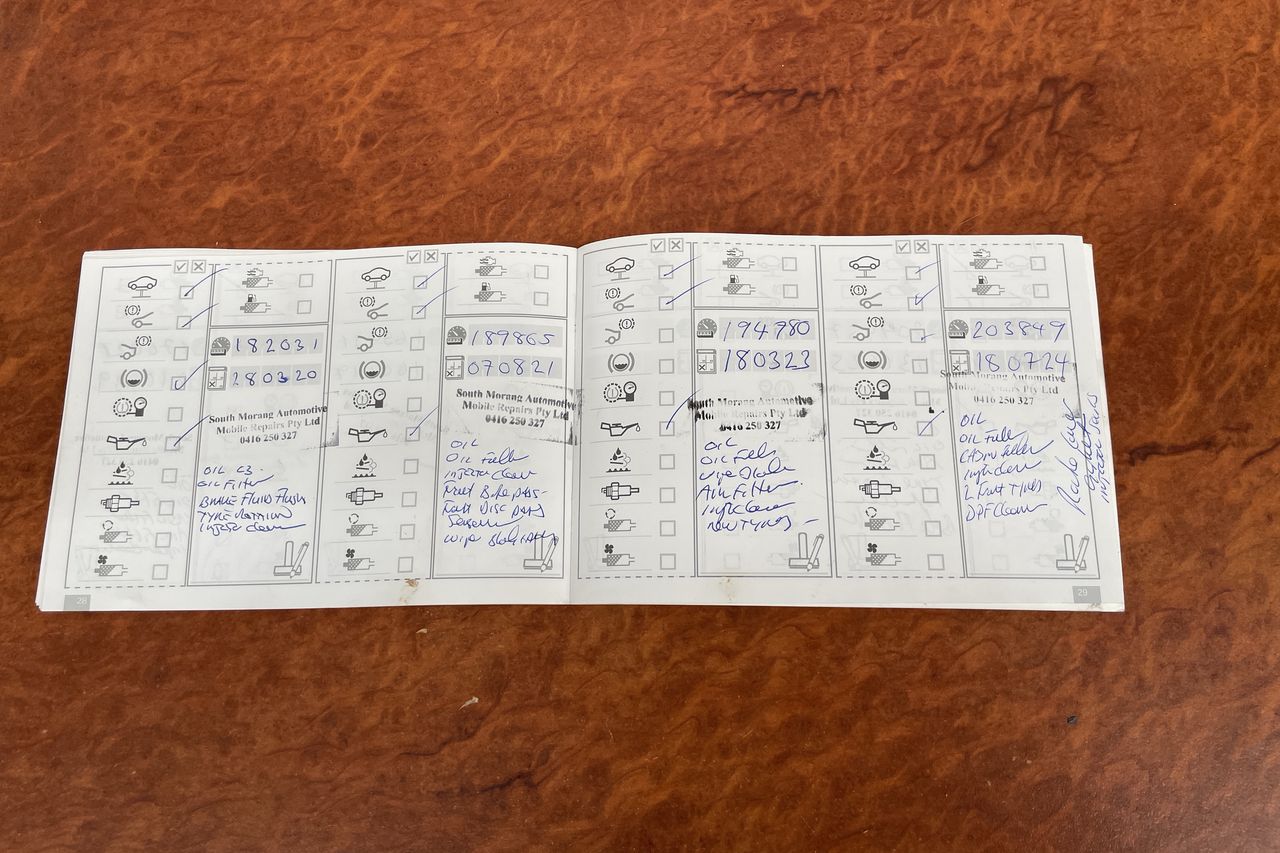 182031
280320
South Morang Automotive
Mobile Repairs Pty Ltd
0416 250 327
OIL C3.
OIL Filter
BRAKE FLUID FLUSH
TYRE ROTATION
Injector Clean
28
189865
070821
South Morang Automotive
Mobile Repairs Pty Ltd
0416 250 327
OIL
OIL Filter
Injector Clean
Front Disc pads
194780
180323
South Morang Automotive
Mobile Repairs Pty Ltd
0416 250 327
OIL
Air Filter
New Tyres
203849
180724
South Morang Automotive
Mobile Repairs Pty Ltd
0416 250 327
OIL
OIL Filter
Cabin filter
2 Front Tyres
DPF Clean
29